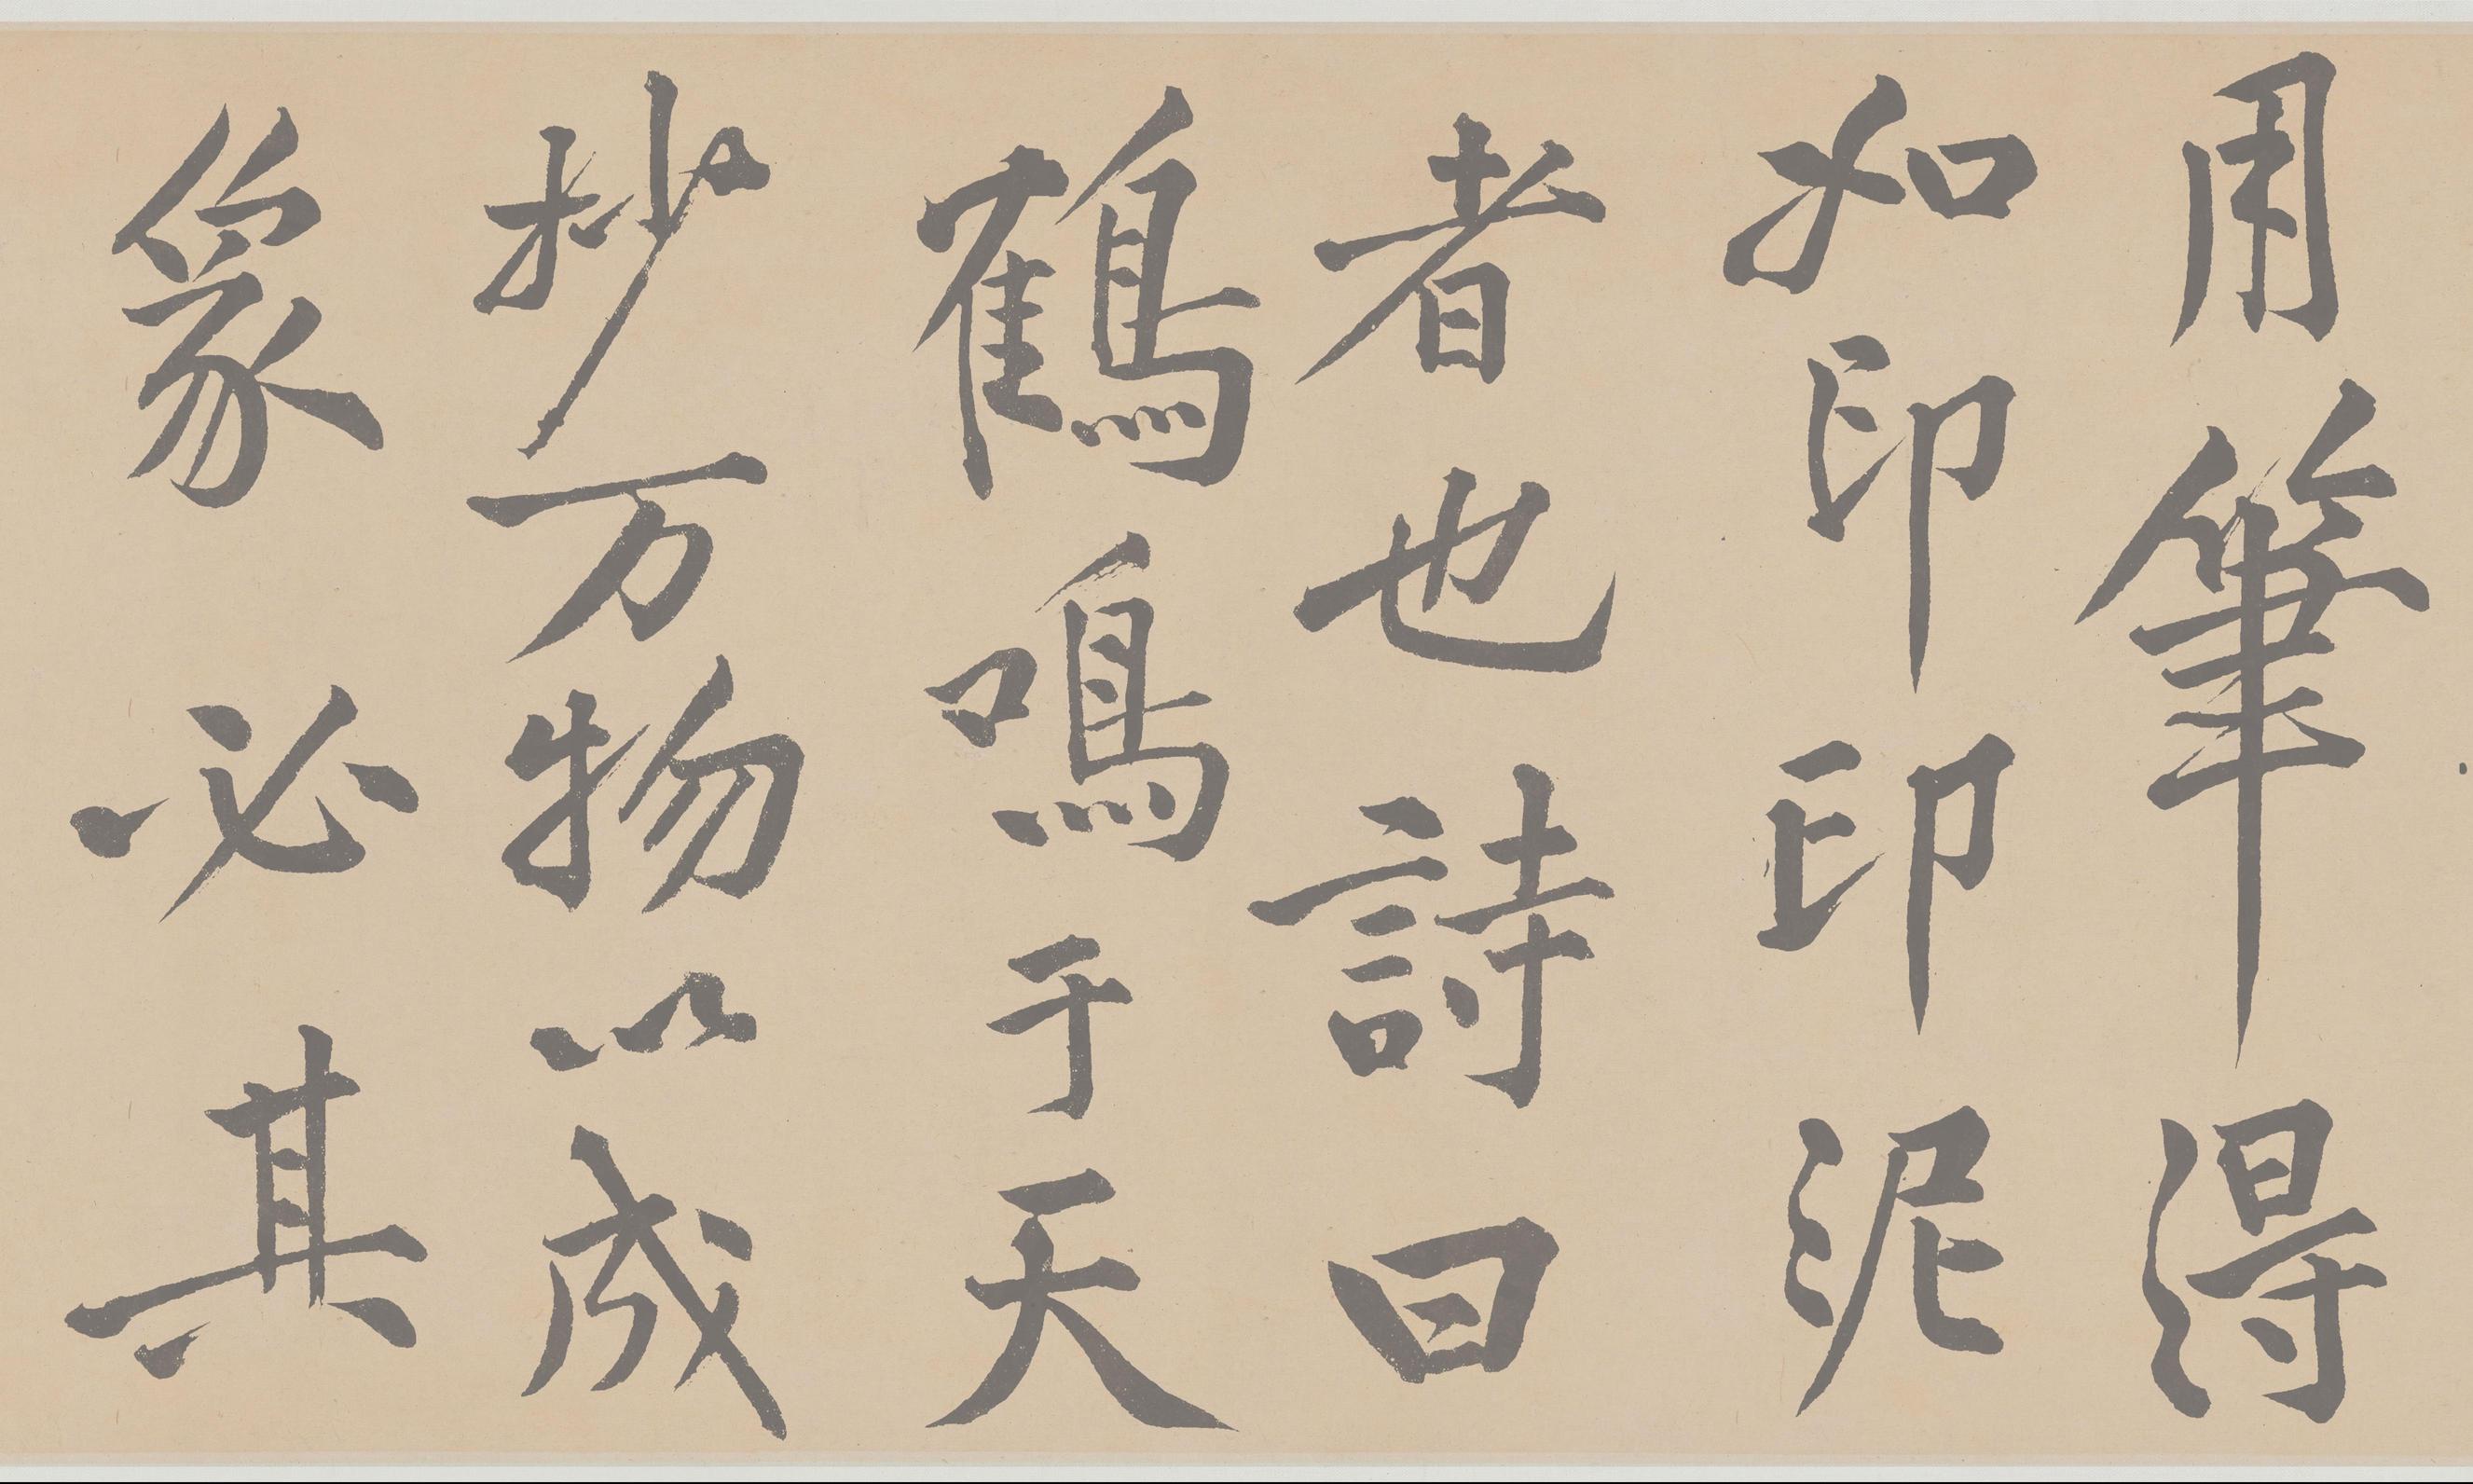 用筆得
如印印泥
者也詩曰
鶴鳴于天
抄万物以成
象必其